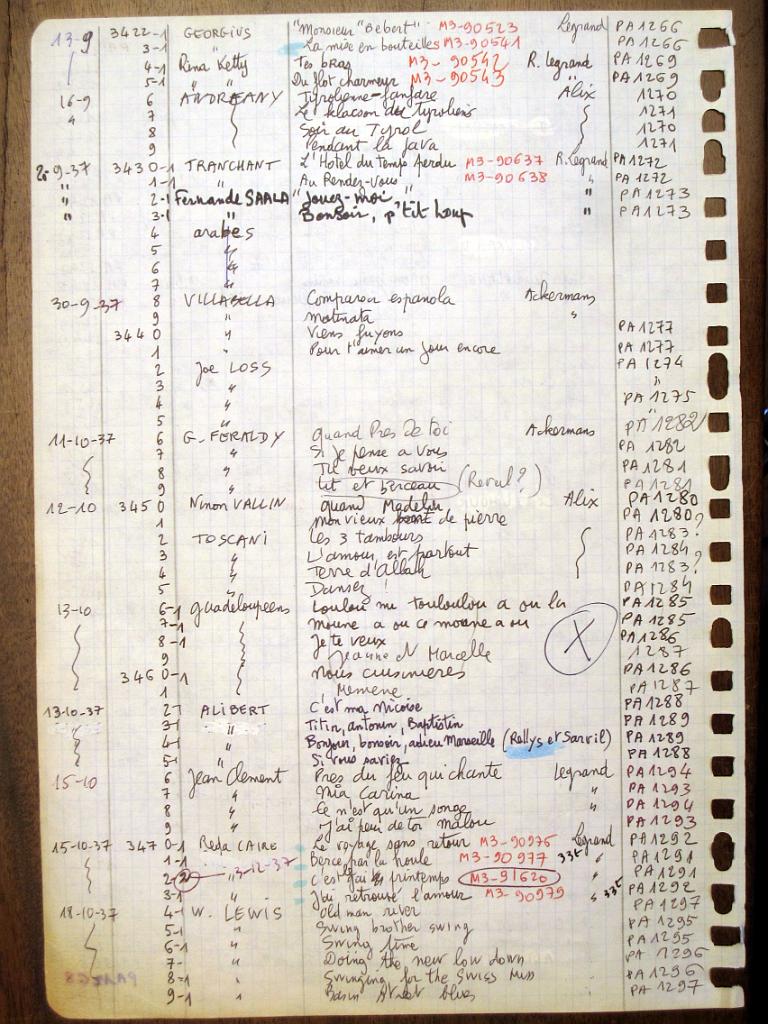 13-9 3422-1 GEORGIUS "Monsieur "Bebert" M3-90523 Legrand PA1266
3-1 " La mise en bouteilles M3-90541 PA1266
4-1 Rina Ketty Tes bras M3-90542 R. Legrand PA1269
5-1 " " Du flot charmeur M3-90543 " PA1269
16-9 6 ANDREANY Tyrolienne-fanfare Alix 1270
" 7 Le klacson des Tyroliens 1271
8 Soir au Tyrol 1270
9 Pendant la java 1271
3430-1 TRANCHANT L'Hotel du temps perdu M3-90637 R. Legrand PA1272
" 1-1 " Au Rendez-vous " M3-90638 " PA1272
" 2-1 Fernande SAALA "Jouez-moi" " PA1273
" 3-1 " Bonsoir, p'tit loup " PA1273
4 arabes
5 "
6 "
7 "
30-9-37 8 VILLABELLA Comparsa espanola Ackermans
9 " matinata "
3440 " Viens fuyons PA1277
1 " Pour t'aimer un jour encore PA1277
2 Joe LOSS PA1274
3 " "
4 " PA1275
5 " "
11-10-37 6 G. FERALDY quand Pres de toi Ackermans PA1282
7 " Si je pense a vous PA1282
8 " Tu veux savoir PA1281
9 " lit et berceau (Revul?) PA1281
12-10 3450 Ninon VALLIN quand Madelin Alix PA1280
1 mon vieux de pierre PA1280?
2 TOSCANI Les 3 tambours PA1283?
3 " L'amour est partout PA1284?
4 " Terre d'Allah PA1283?
5 " Dansez! PA1284
13-10 6-1 guadeloupeens Loulou mi touloulou a ou la PA1285
7-1 moune a ou ce moune a ou PA1285
8-1 Je te veux X PA1286
9 Jeanne N Marcelle 1287
3460-1 nous cuisinieres PA1286
1 Memene PA1287
13-10-37 2-1 ALIBERT C'est ma Nicoise PA1288
3-1 " Titin, antonin, Baptistin PA1289
4-1 " Bonjour, bonsoir, adieu Marseille (Rallys et Sarvil) PA1289
5-1 " Si vous saviez PA1288
15-10 6 Jean Clement Pres du feu qui chante Legrand PA1294
7 " Mia Carina " PA1293
8 " Ce n'est qu'un songe " PA1294
9 " J'ai peur de toi malou PA1293
15-10-37 3470-1 Reda CAIRE Le voyage sans retour M3-90976 Legrand PA1292
1-1 " Berce par la houle M3-90977 33t " PA1291
2-2 " 3-12-37 c'est printemps M3-91620 " PA1291
3-1 " J'ai retrouvé l'amour M3-90979 " 33t PA1292
18-10-37 4-1 W. LEWIS Old man river PA1297
5-1 " Swing brother swing PA1295
6-1 " Swing time PA1295
7- " Doing the new low down PA1296
8-1 " Swinging for the Swiss Miss PA1296
9-1 " Basin street blues PA1297